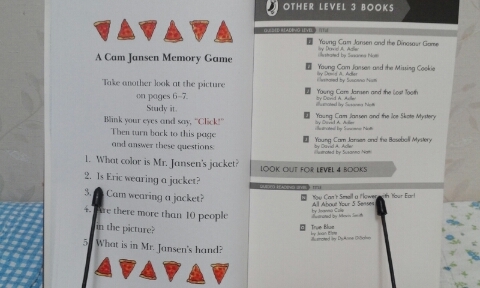 A Cam Jansen Memory Game
Take another look at the picture
on pages 6–7.
Study it.
Blink your eyes and say, "Click!"
Then turn back to this page
and answer these questions:
1. What color is Mr. Jansen's jacket?
2. Is Eric wearing a jacket?
Cam wearing a jacket?
4. Are there more than 10 people
in the picture?
5. What is in Mr. Jansen's hand?
OTHER LEVEL 3 BOOKS
GUIDED READING LEVEL TITLE
Young Cam Jansen and the Dinosaur Game
by David A. Adler
illustrated by Susanna Natti
Young Cam Jansen and the Missing Cookie
by David A. Adler
illustrated by Susanna Natti
Young Cam Jansen and the Lost Tooth
by David A. Adler
illustrated by Susanna Natti
Young Cam Jansen and the Ice Skate Mystery
by David A. Adler
illustrated by Susanna Natti
Young Cam Jansen and the Baseball Mystery
by David A. Adler
illustrated by Susanna Natti
LOOK OUT FOR LEVEL 4 BOOKS
GUIDED READING LEVEL TITLE
You Can't Smell a Flower with Your Ear!
All About Your 5 Senses
by Joanna Cole
illustrated by Mavis Smith
True Blue
by Joan Elste
illustrated by DyAnne DiSalvo